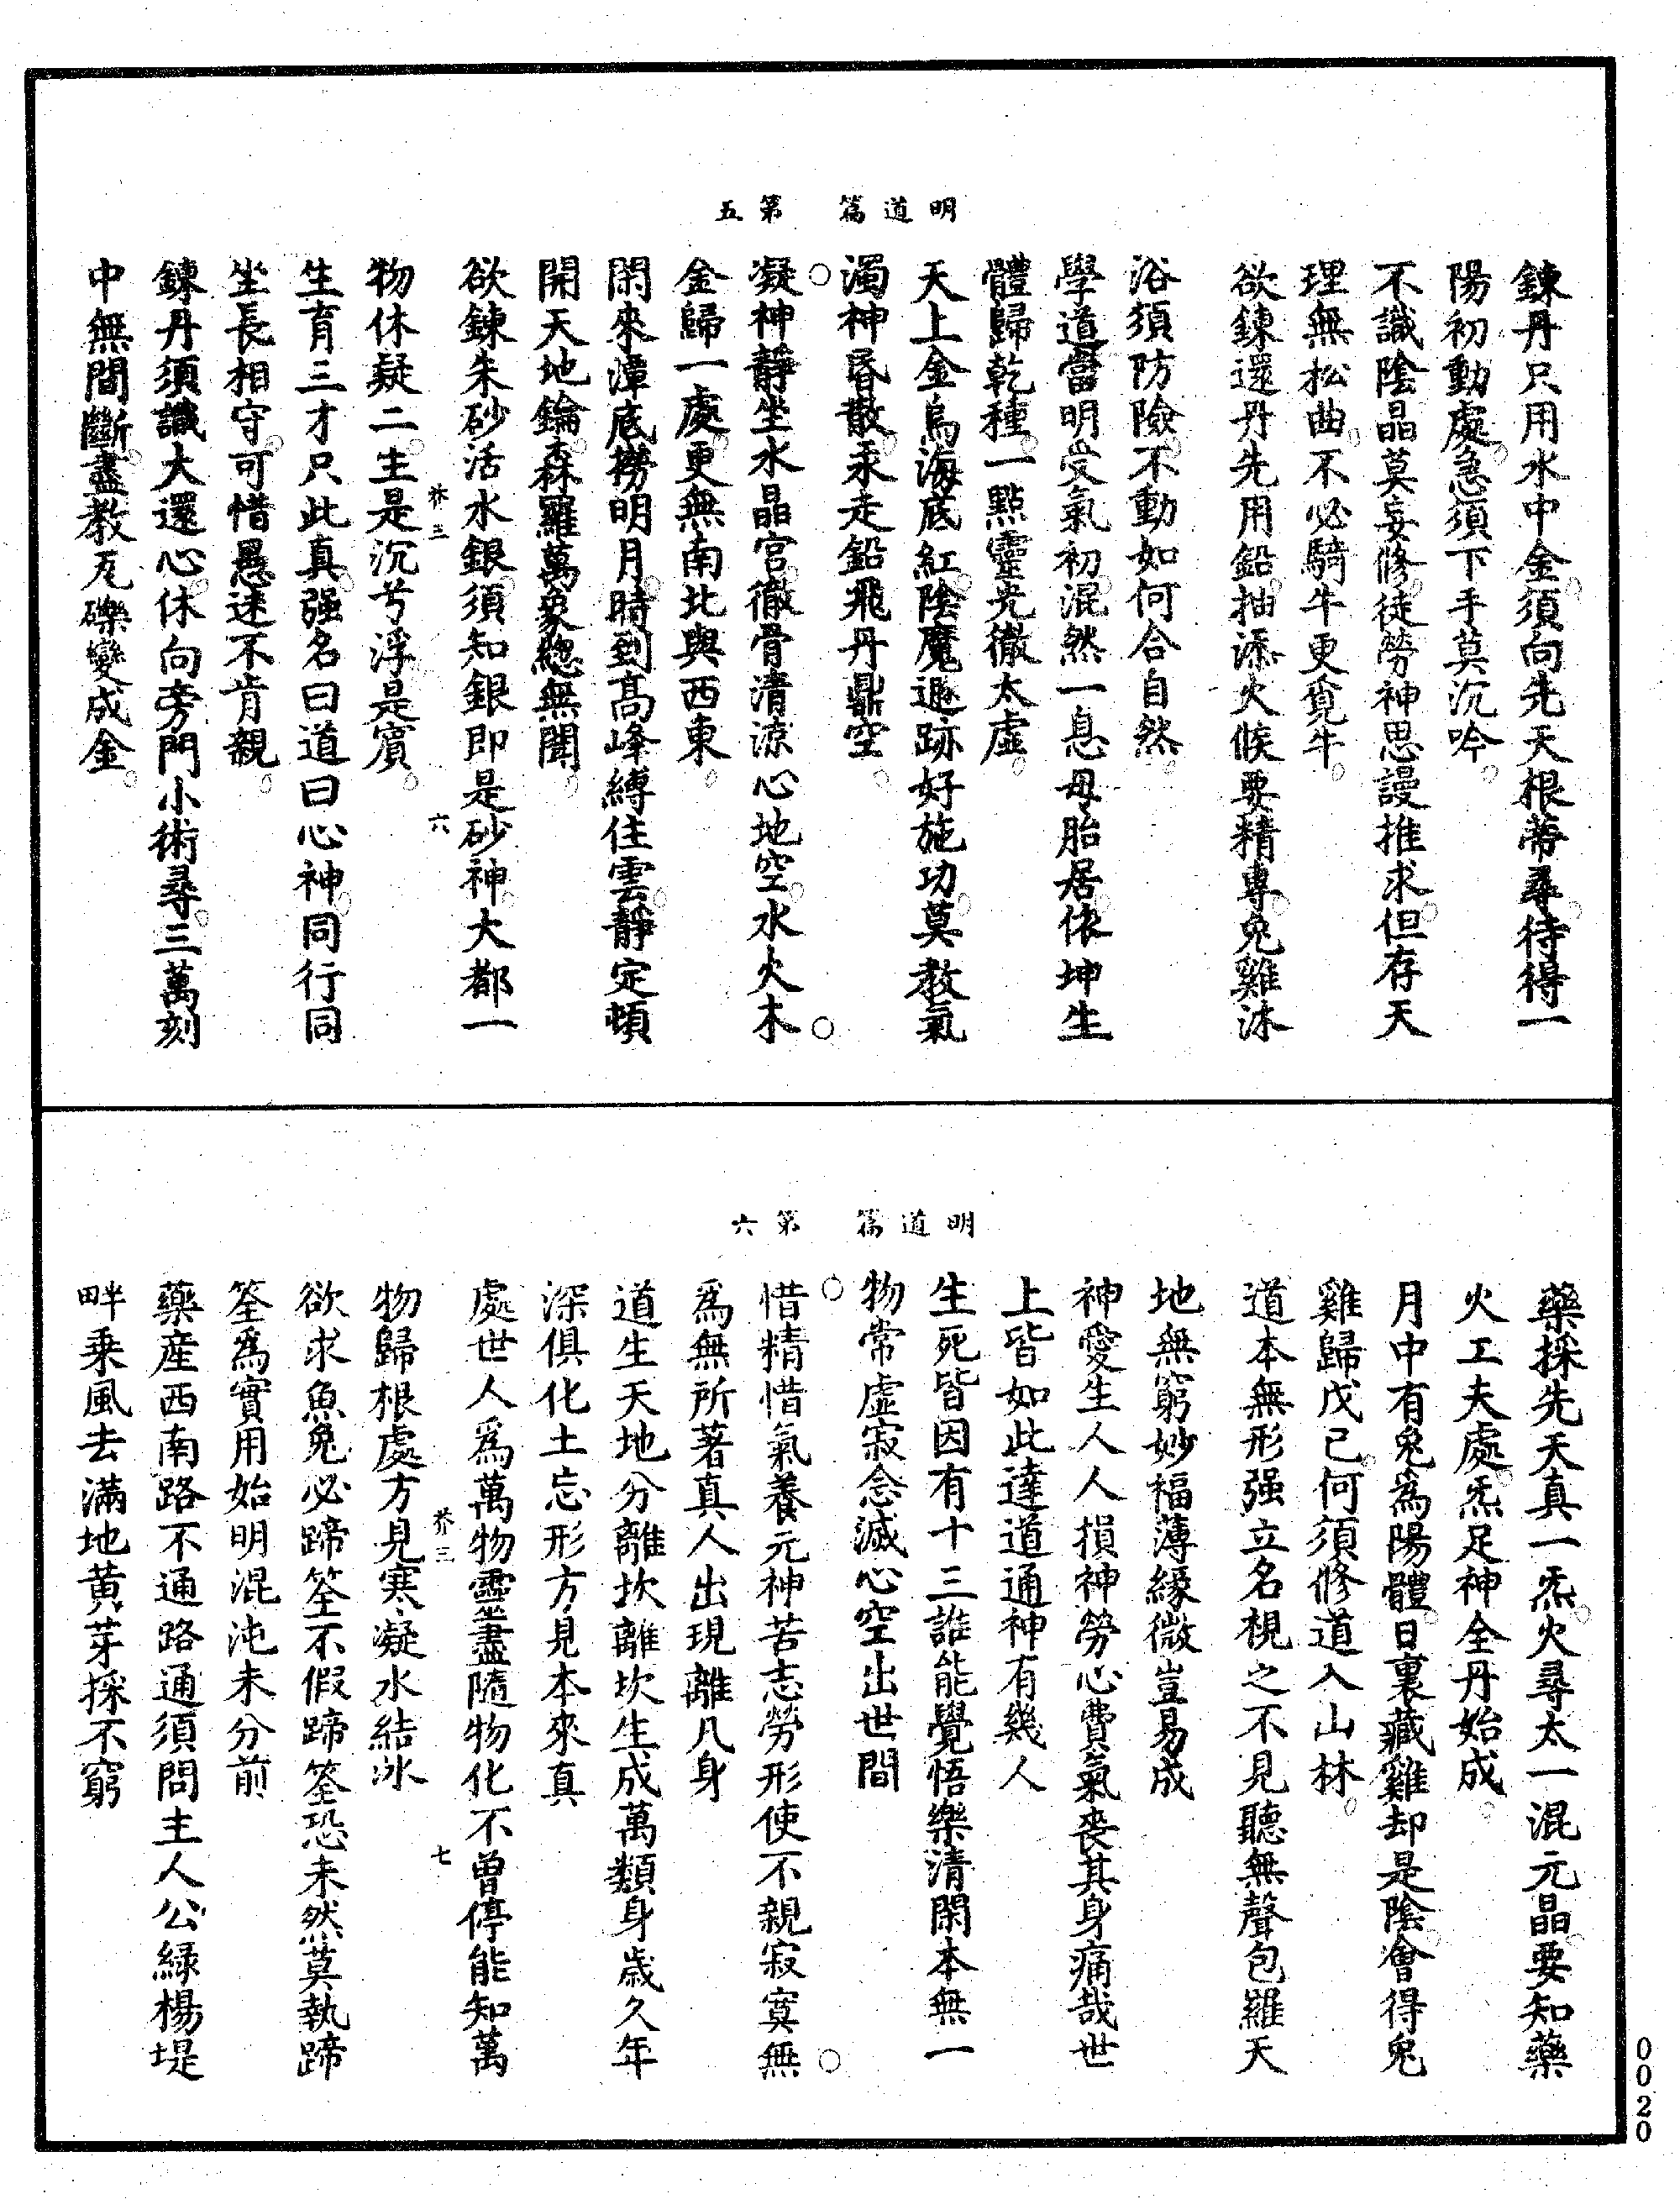 明道篇　第五
鍊丹只用水中金須向先天根蔕尋待得一
陽初動處急須下手莫沉吟
不識陰晶莫妄修徒勞神思謾推求但存天
理無松曲不必騎牛更覓牛
欲鍊還丹先用鉛抽添火候要精專兔雞沐
浴須防險不動如何合自然
學道當明受氣初混然一息母胎居依坤生
體歸乾種一點靈光徹太虛
天上金烏海底紅陰魔遯跡好施功莫教氣
濁神昏散汞走鉛飛丹鼎空
凝神靜坐水晶宫徹骨清涼心地空水火木
金歸一處更無南北與西東
閑來潭底撈明月時到髙峰縛住雲靜定頓
開天地鑰森羅萬象緫無聞
欲鍊朱砂活水銀須知銀即是砂神大都一
芥三　六
物休疑二主是沉兮浮是賓
生育三才只此真强名曰道曰心神同行同
坐長相守可惜愚迷不肯親
鍊丹須識大還心休向旁門小術尋三萬刻
中無間斷盡教瓦礫變成金
明道篇　第六
藥採先天真一炁火尋太一混元晶要知藥
火工夫處炁足神全丹始成
月中有兔為陽體日裏藏雞却是陰會得兔
雞歸戊己何須修道入山林
道本無形强立名視之不見聽無聲包羅天
地無窮妙福薄緣微豈易成
神愛生人人損神勞心費氣丧其身痛哉世
上皆如此達道通神有幾人
生死皆因有十三誰能覺悟樂清閑本無一
物常虛寂念滅心空出世間
惜精惜氣養元神苦志勞形使不親寂寞無
為無所著真人出現離凡身
道生天地分離坎離坎生成萬類身歲久年
深俱化土忘形方見本來真
處世人為萬物靈盡隨物化不曾停能知萬
芥三　七
物歸根處方見寒凝水結冰
欲求魚兔必蹄筌不假蹄筌恐未然莫執蹄
筌為實用始明混沌未分前
藥産西南路不通路通須問主人公緑楊堤
畔乗風去滿地黄芽採不窮
0020